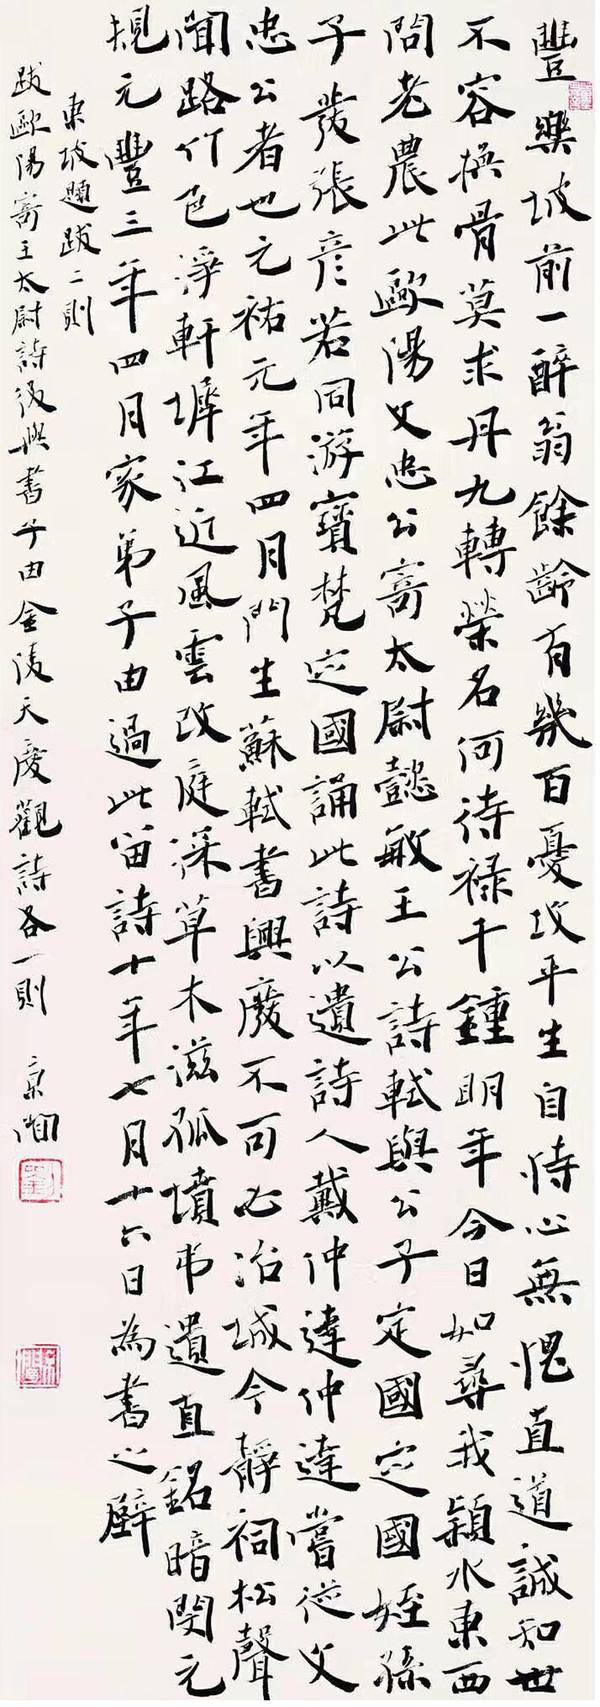 豐樂坡前一醉翁餘齡有幾百憂攻平生自恃心無愧直道誠知世
不容換骨莫求丹九轉榮名何待祿千鍾明年今日如尋我潁水東西
問老農此歐陽文忠公寄太尉懿敏王公詩軾與公子定國定國姪孫
子發張彥若同游寶梵定國誦此詩以遺詩人戴仲達仲達嘗從文
忠公者也元祐元年四月門生蘇軾書興廢不可必冶城今靜祠松聲
聞路竹色淨軒墀江近風雲改庭深草木滋孤墳弔遺直銘暗閱元
規元豐三年四月家弟子由過此留詩十年七月十六日為書之壁
東坡題跋二則
跋歐陽寄王太尉詩後與書子由金陵天慶觀詩各一則